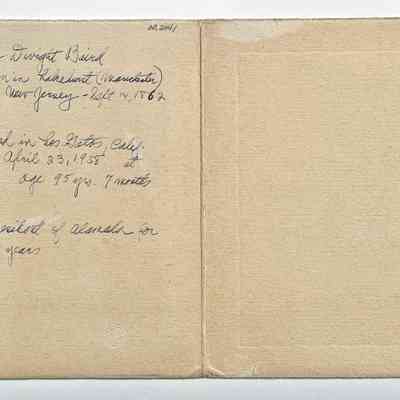 - Dwight Baird
n in Lakehurst (Manchester)
New Jersey - Sept 14, 1862
h in Los Gatos, Calif.
April 23, 1958 at
age 95 yrs. 7 months
resident of Alameda for
years